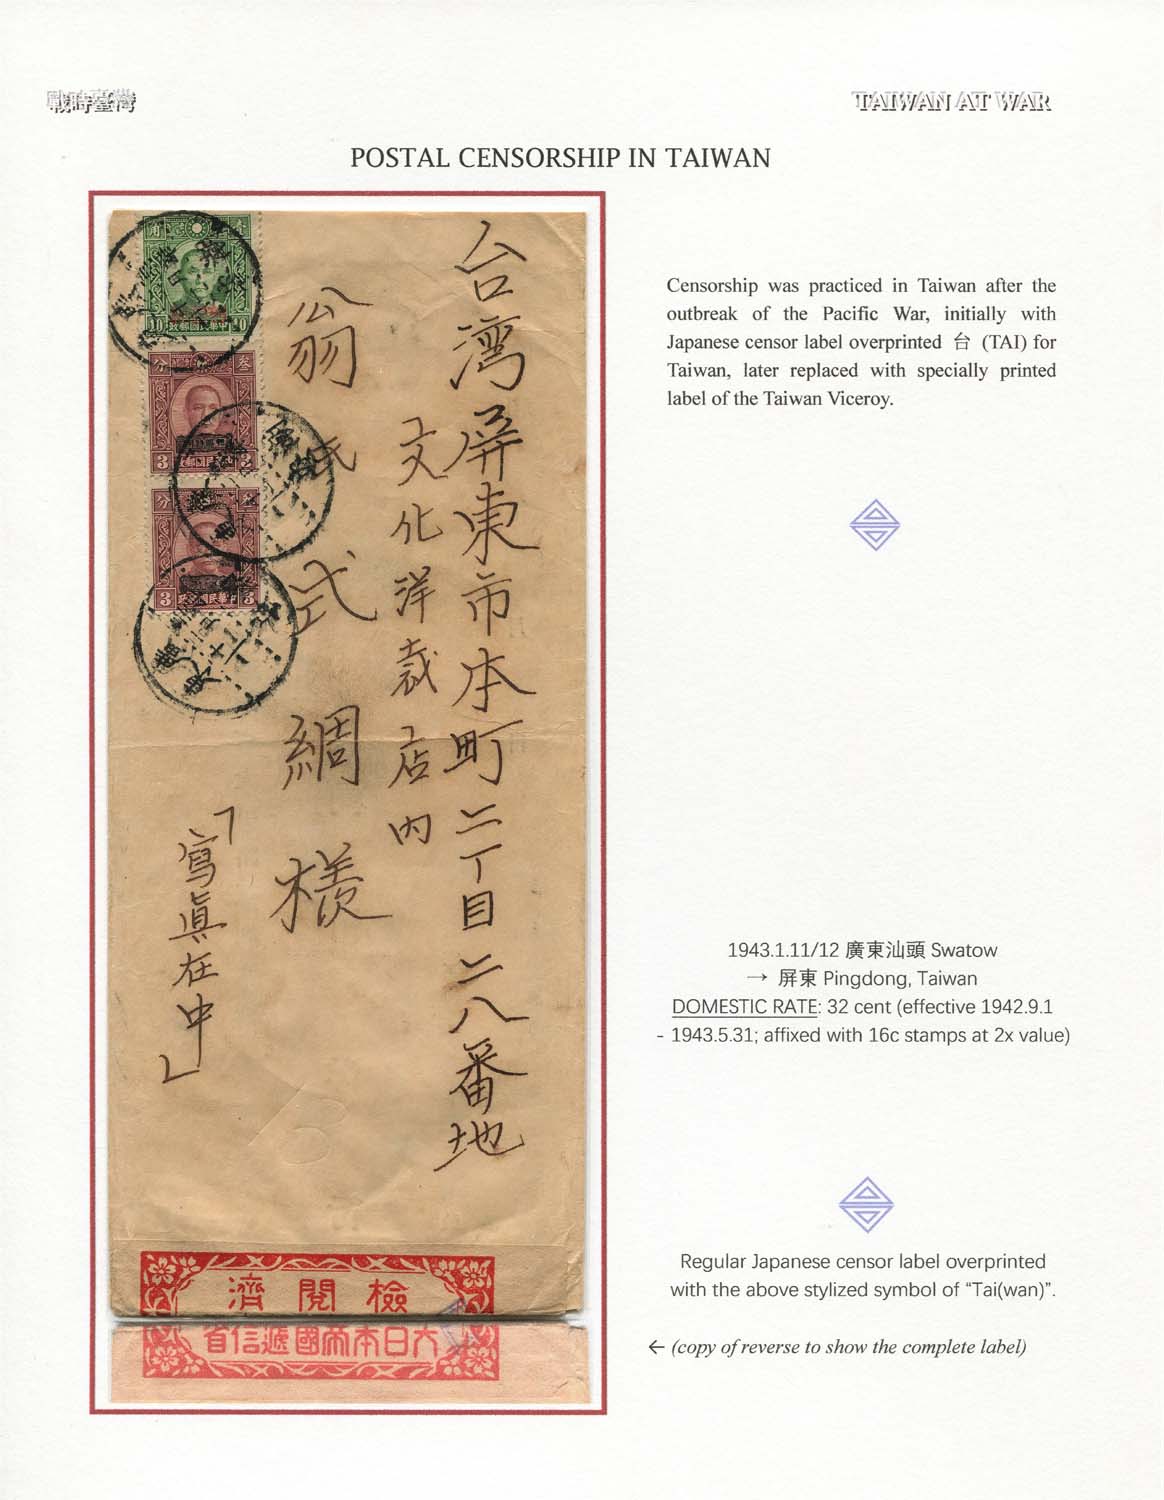 戰時臺灣
TAIWAN AT WAR
POSTAL CENSORSHIP IN TAIWAN
台湾屏東市本町二丁目二八番地
文化洋裁店内
翁氏式綢様
「寫眞在中」
10
10
中華民國郵政
叁
分
3
3
中華民國郵政
分
3
3
檢閱濟
大日本帝國遞信省
Censorship was practiced in Taiwan after the
outbreak of the Pacific War, initially with
Japanese censor label overprinted 台 (TAI) for
Taiwan, later replaced with specially printed
label of the Taiwan Viceroy.
1943.1.11/12 廣東汕頭 Swatow
→ 屏東 Pingdong, Taiwan
DOMESTIC RATE: 32 cent (effective 1942.9.1
- 1943.5.31; affixed with 16c stamps at 2x value)
Regular Japanese censor label overprinted
with the above stylized symbol of “Tai(wan)”.
← (copy of reverse to show the complete label)